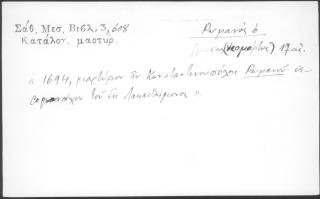 Σάθ. Μεσ. Βιβλ. 3, 608
Κατάλογ. μαρτυρ.
Ρωμανός ὁ
(νεομάρτυς) 17 αἰ.
« 1694, μαρτύριον ἐν Κωνσταντινουπόλει Ρωμανοῦ ἱε-
ρομονάχου τοῦ ἐκ Λακεδαίμονος ».